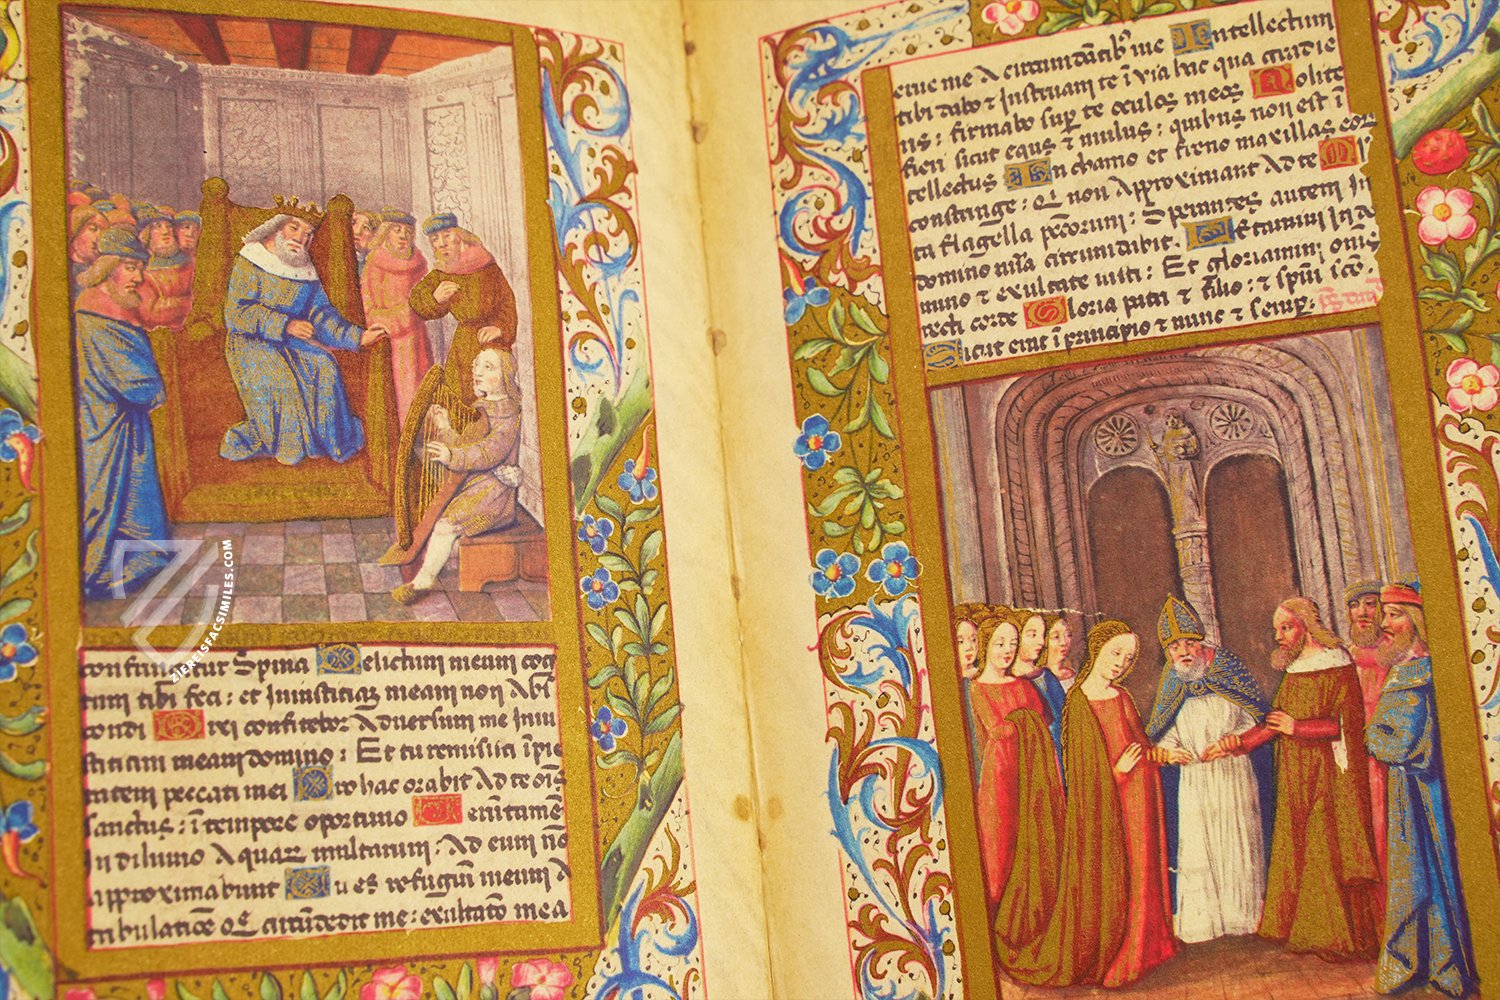 ZIEREISFACSIMILES.COM
confungitur Spina Delictum meum cog
num tibi feci : et Iniusticiaʒ meam non Abs
condi Dixi confitebor Aduersum me Iniu
sticiam meam domino : Et tu remisisti īpie
tatem peccati mei Pro hac orabit Ad te oīs
sanctus : ī tempore oportuno Verūtamē
In diluuio Aquarum multarum : Ad eum nō
Approximabunt Tu es refugiū meum A
tribulatiōe Q circūdedit me : exultatio mea
erue me A circumdātibꝰ me Intellectum
tibi dabo ⁊ Instruam te ī via hac qua gradie
ris : firmabo suꝑ te oculos meos Nolite
fieri sicut equs ⁊ mulus : quibus non est ī
tellectus In chamo et freno maxillas eoꝝ
constringe : Q non Approximant Ad te Ml
ta flagella pc̄corum : Sperantes autem In
domino mīa circumdabit. Letamini In do
mino ⁊ exultate iusti : Et gloriamini om̄s
recti corde Gloria patri ⁊ filio : ⁊ sp̄ui sc̄o.
Sicut erat ī principio ⁊ nunc ⁊ semꝑ.